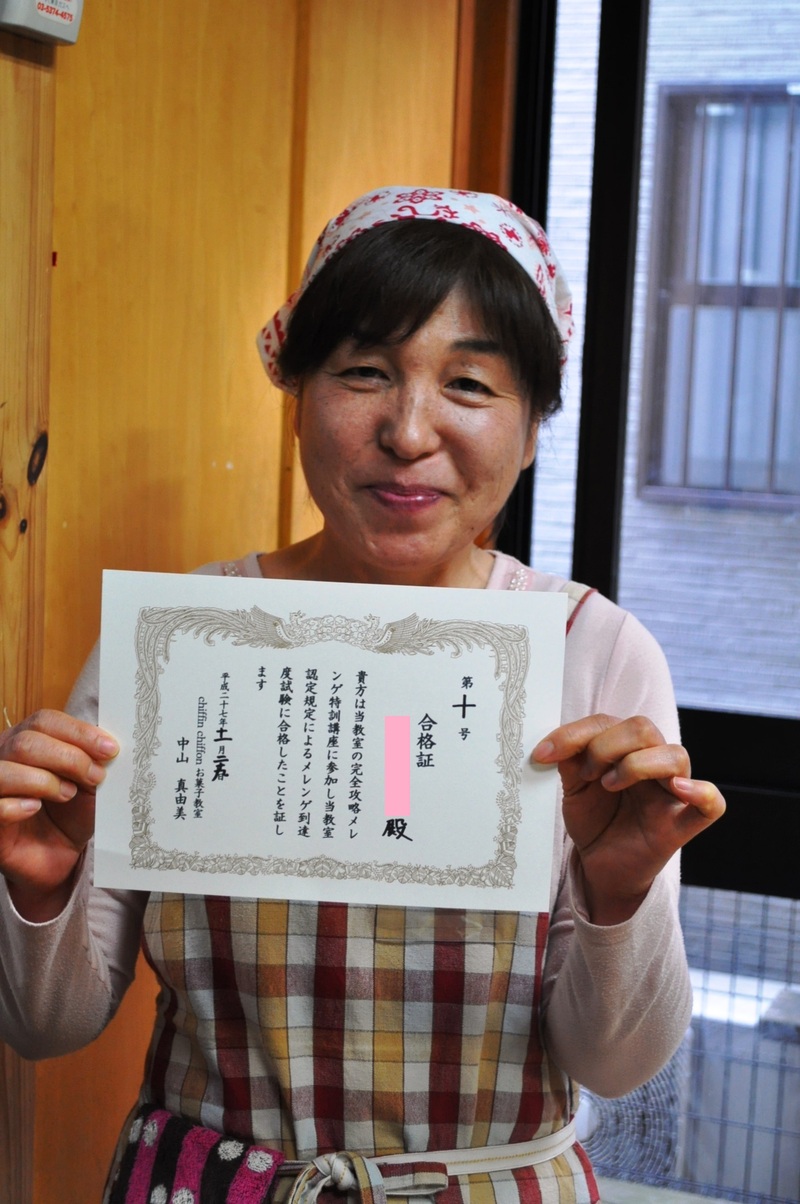 03-5374-4575
第十号
合格証
殿
貴方は当教室の完全攻略メレ
ンゲ特訓講座に参加し当教室
認定規定によるメレンゲ到達
度試験に合格したことを証し
ます
平成二十七年十一月二十三日
chiffin chiffon お菓子教室
中山 真由美